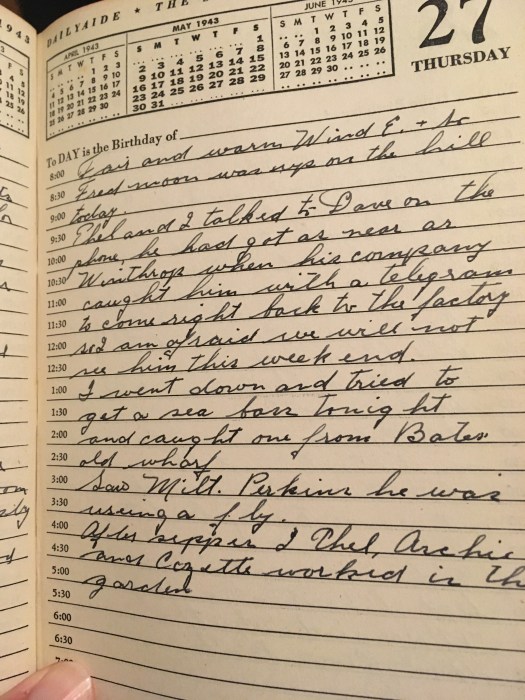 DAILYAIDE ★ THE
1943
APRIL 1943
S M T W T F S
1 2 3
4 5 6 7 8 9 10
11 12 13 14 15 16 17
18 19 20 21 22 23 24
25 26 27 28 29 30
MAY 1943
S M T W T F S
1
2 3 4 5 6 7 8
9 10 11 12 13 14 15
16 17 18 19 20 21 22
23 24 25 26 27 28 29
30 31
JUNE 1943
S M T W T F S
1 2 3 4 5
6 7 8 9 10 11 12
13 14 15 16 17 18 19
20 21 22 23 24 25 26
27 28 29 30
27
THURSDAY
To DAY is the Birthday of
8:00 Fair and warm Wind E. + So
8:30 Fred moon was up on the hill
9:00 today.
9:30 Thel and I talked to Dave on the
10:00 phone, he had got as near as
10:30 Winthrop when his company
11:00 caught him with a telegram
11:30 to come right back to the factory
12:00 so I am afraid we will not
12:30 see him this week end.
1:00 I went down and tried to
1:30 get a sea bass tonight
2:00 and caught one from Bates
2:30 old wharf
3:00 Saw Milt. Perkins he was
3:30 using a fly.
4:00 After supper I Thel, Archie
4:30 and Cozette worked in th
5:00 garden
5:30
6:00
6:30